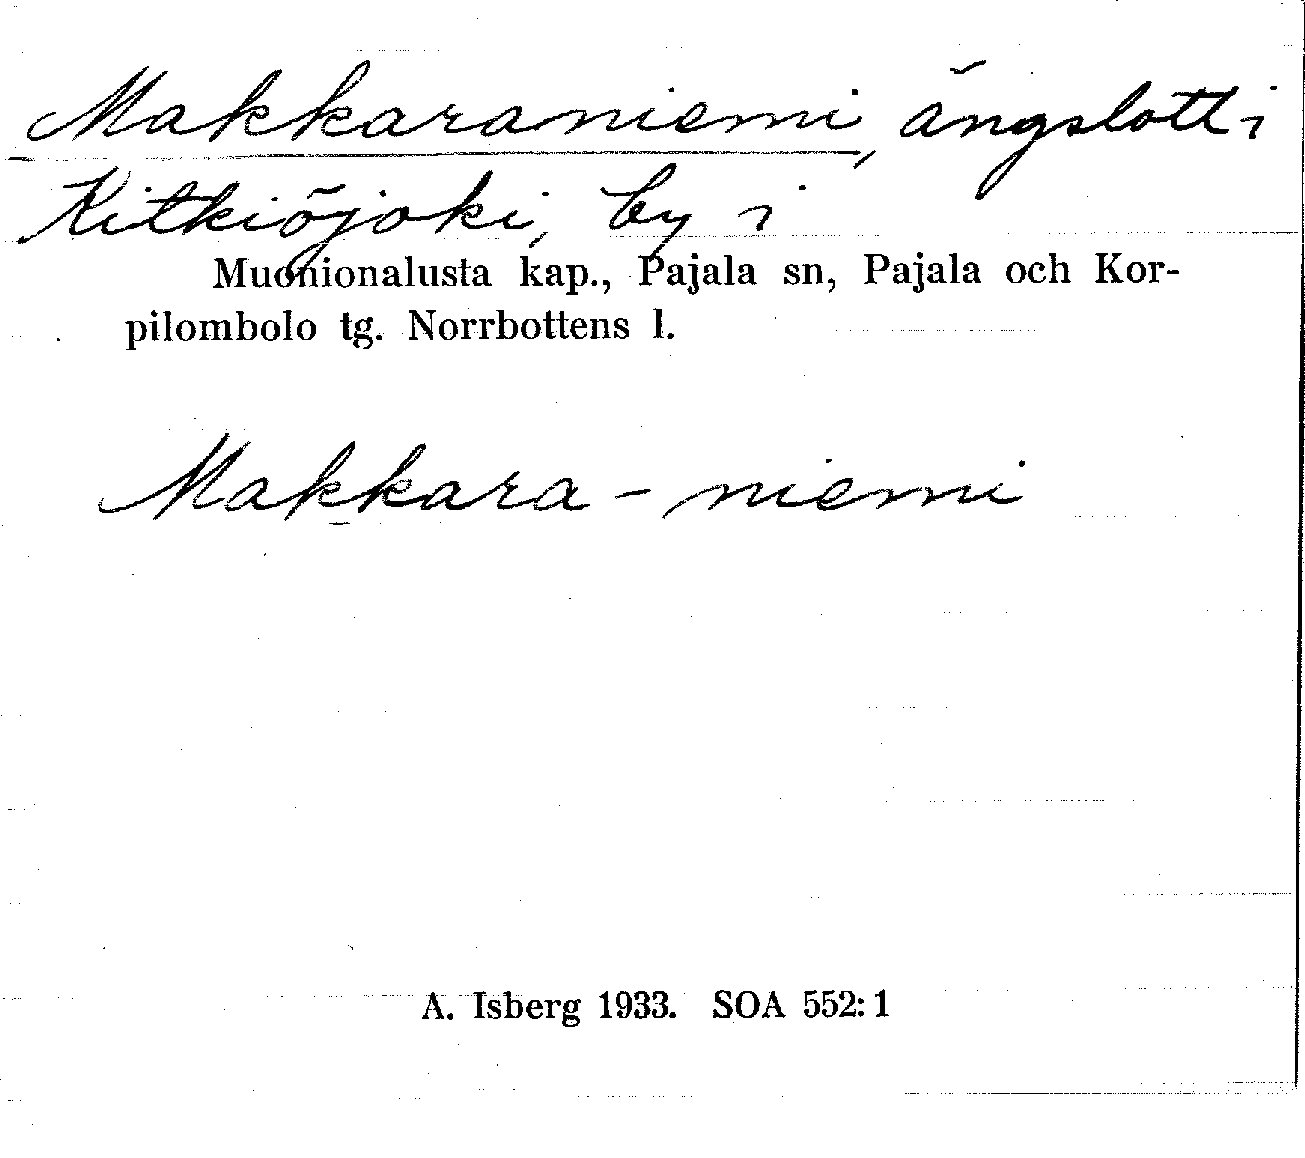 Makkaraniemi, ängslott i
Kitkiöjoki, by i
Muonionalusta kap., Pajala sn, Pajala och Kor-
pilombolo tg. Norrbottens l.
Makkara-niemi
A. Isberg 1933. SOA 552:1